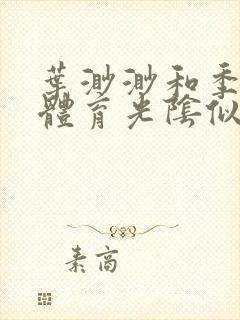 葉渺渺和季
體育光陰似
素高